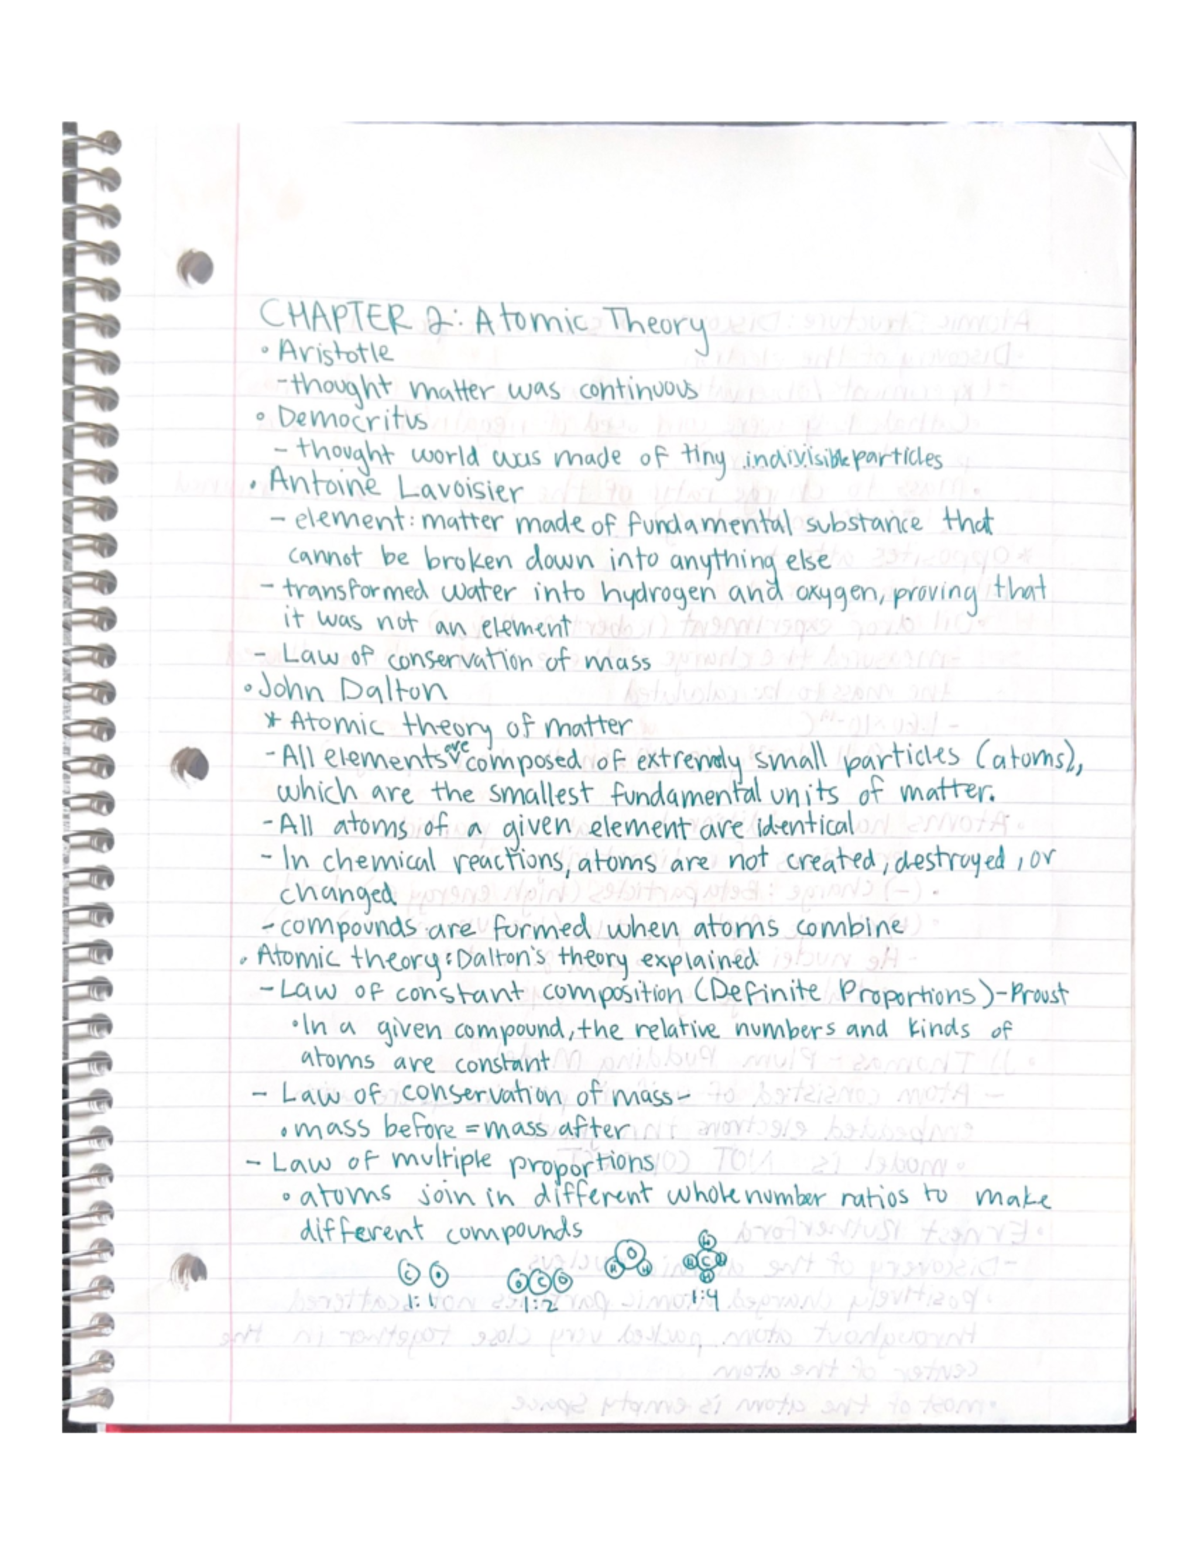 CHAPTER 2: Atomic Theory
• Aristotle
- thought matter was continuous
• Democritus
- thought world was made of tiny indivisible particles
• Antoine Lavoisier
- element: matter made of fundamental substance that
cannot be broken down into anything else
- transformed water into hydrogen and oxygen, proving that
it was not an element
- Law of conservation of mass
• John Dalton
* Atomic theory of matter
- All elements are composed of extremely small particles (atoms),
which are the smallest fundamental units of matter.
- All atoms of a given element are identical
- In chemical reactions, atoms are not created, destroyed, or
changed
- compounds are formed when atoms combine
• Atomic theory: Dalton's theory explained
- Law of constant composition (Definite Proportions) - Proust
• In a given compound, the relative numbers and kinds of
atoms are constant
- Law of conservation of mass -
• mass before = mass after
- Law of multiple proportions
• atoms join in different whole number ratios to make
different compounds
C O O C O H O H H H C H H
1:1 1:2 1:4